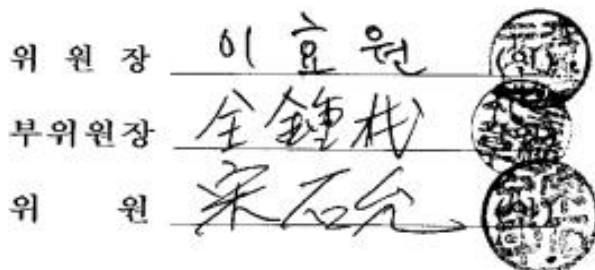 위 원 장 이효원 (인)
부위원장 全鍾杙
위 원 宋石允 (인)